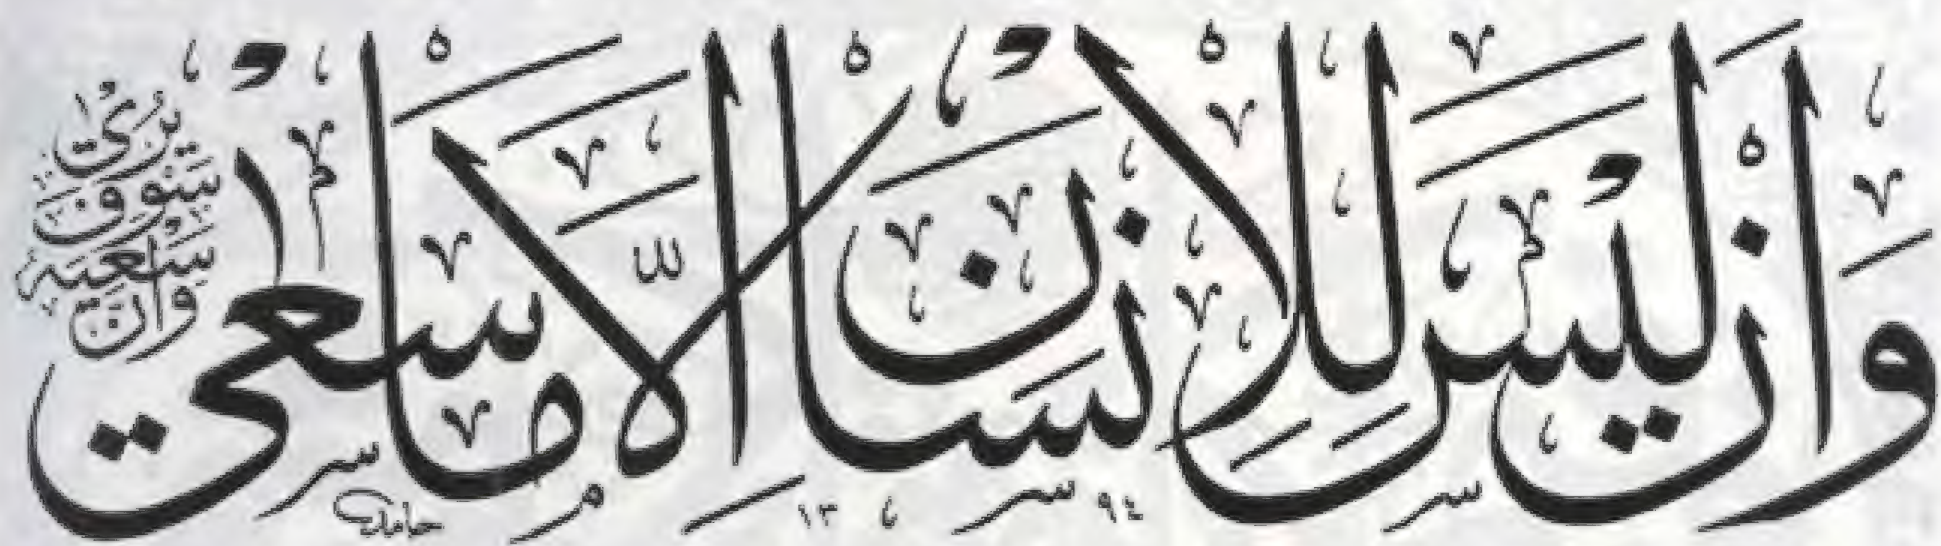 وَاَنْ لَيْسَ لِلْاِنْسَانِ اِلَّا مَا سَعٰى
وَاَنَّ سَعْيَهُ سَوْفَ يُرٰى
حامد